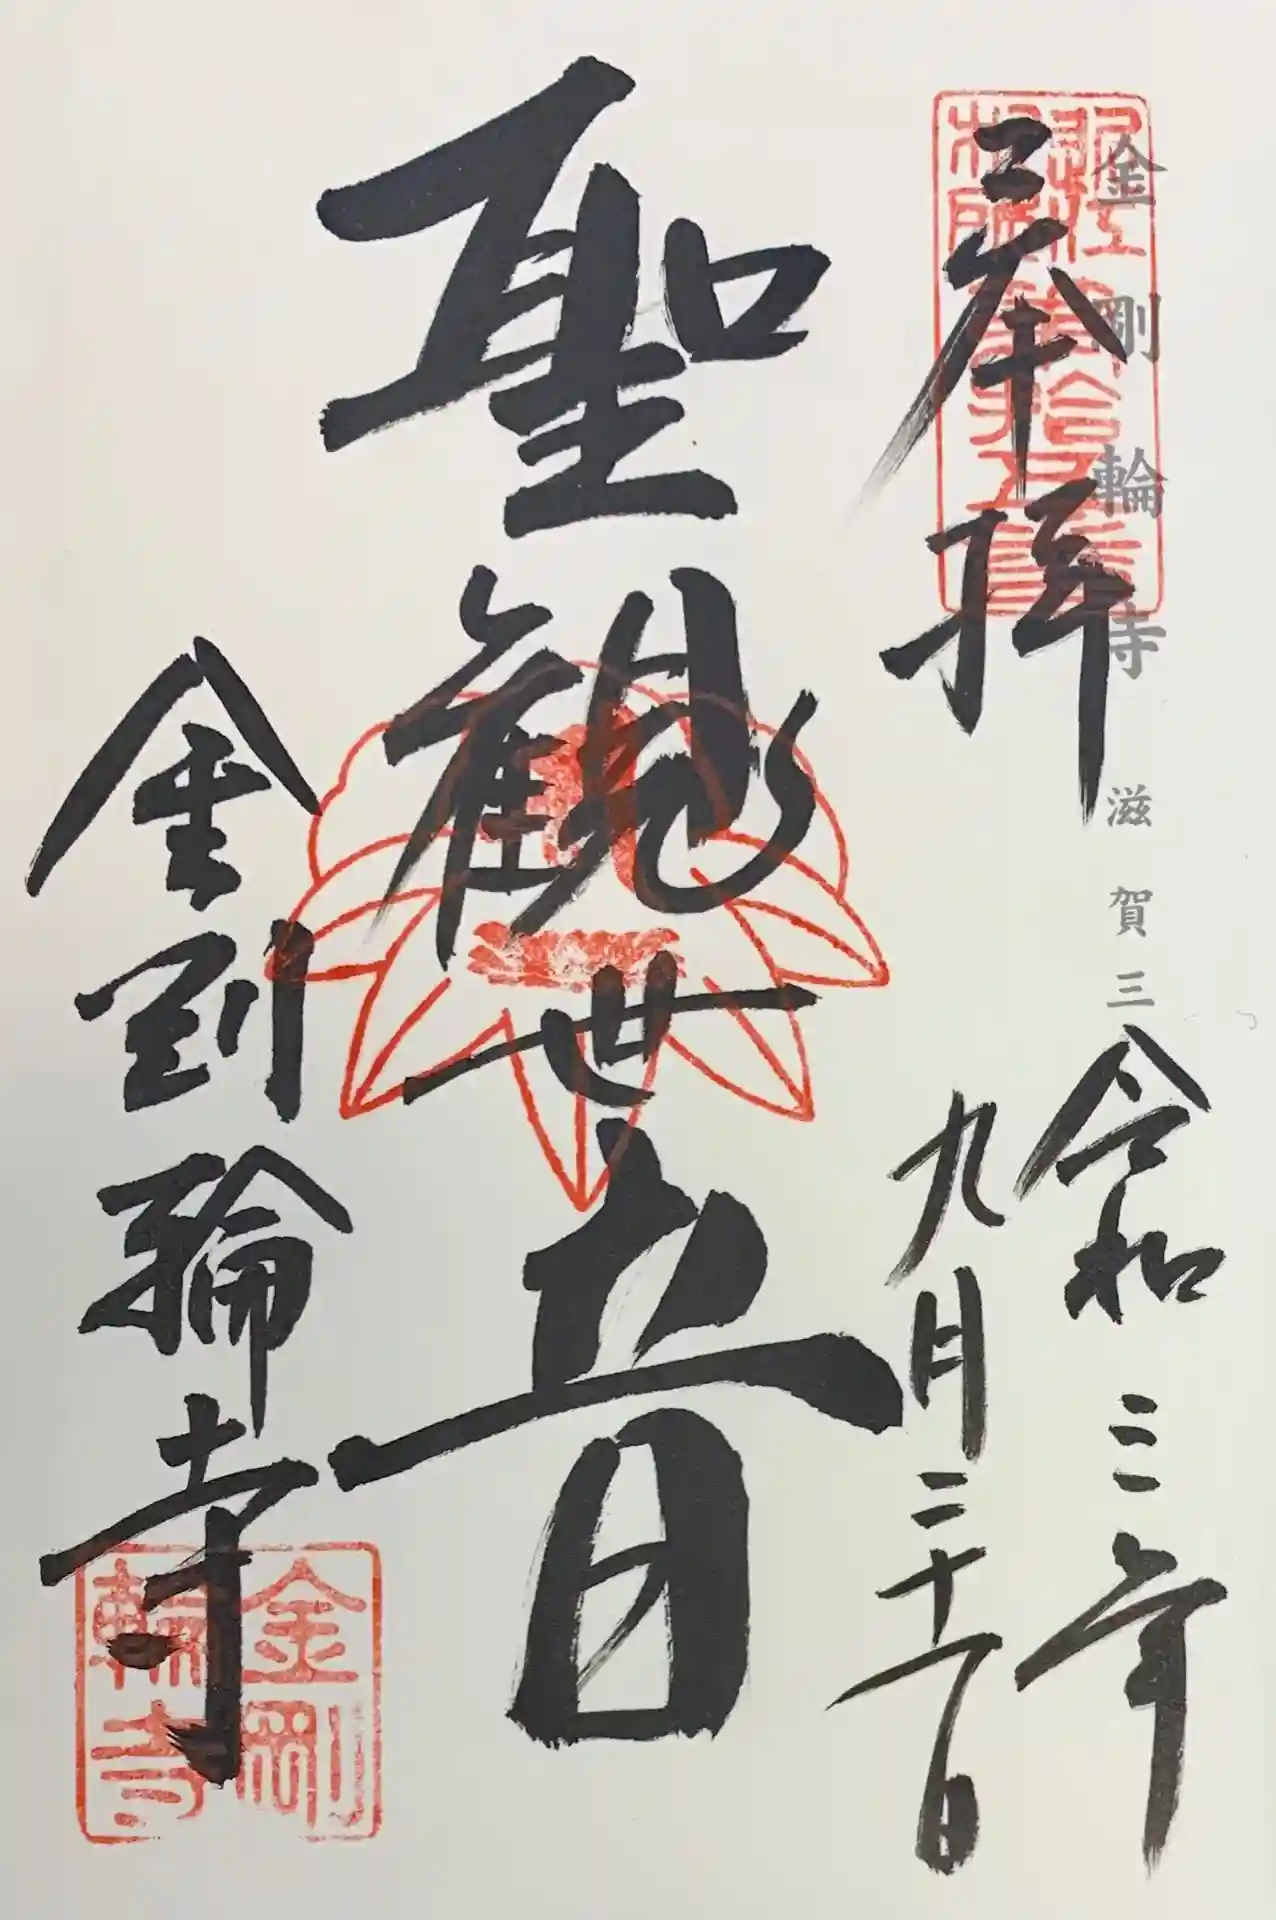 金剛輪寺 滋賀三
奉拝
令和三年
九月二十六日
聖観世音
金剛輪寺
金剛輪寺